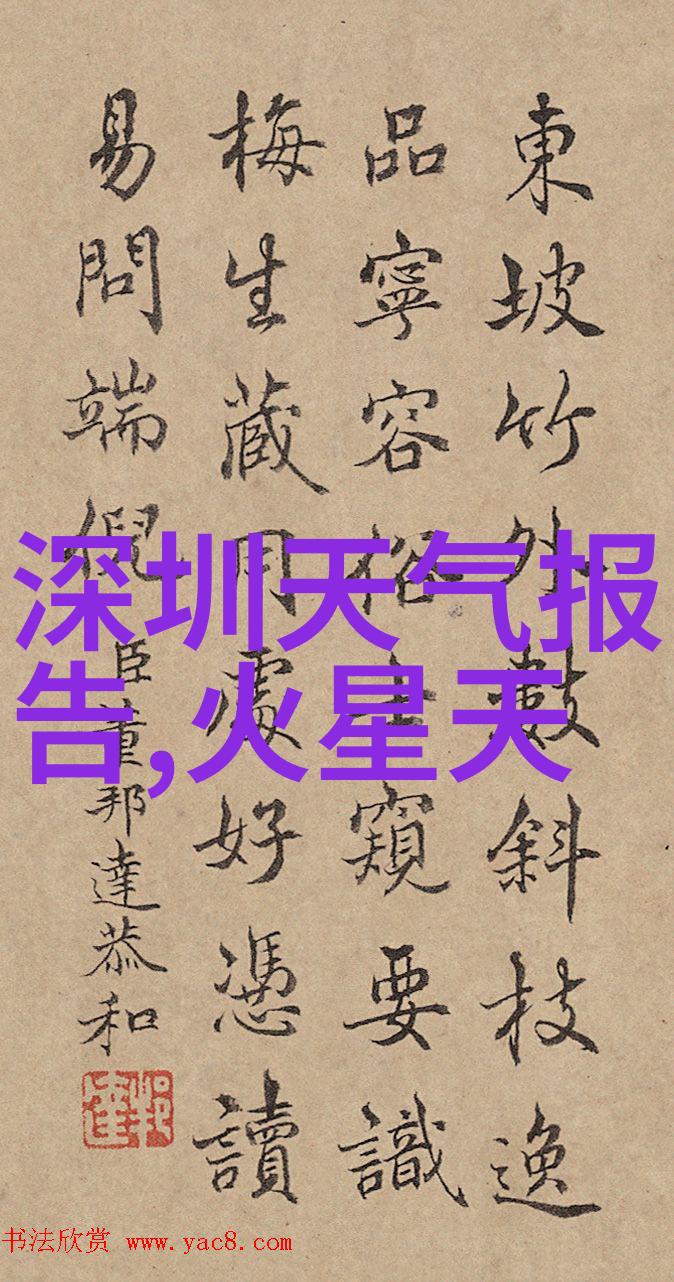 東坡竹外敧斜枝逸
品寧容俗士窺要識
梅生蔵用處好憑讀
易問端倪
臣董邦達恭和
深圳天气报
告,火星天
书法欣赏 www.yac8.com